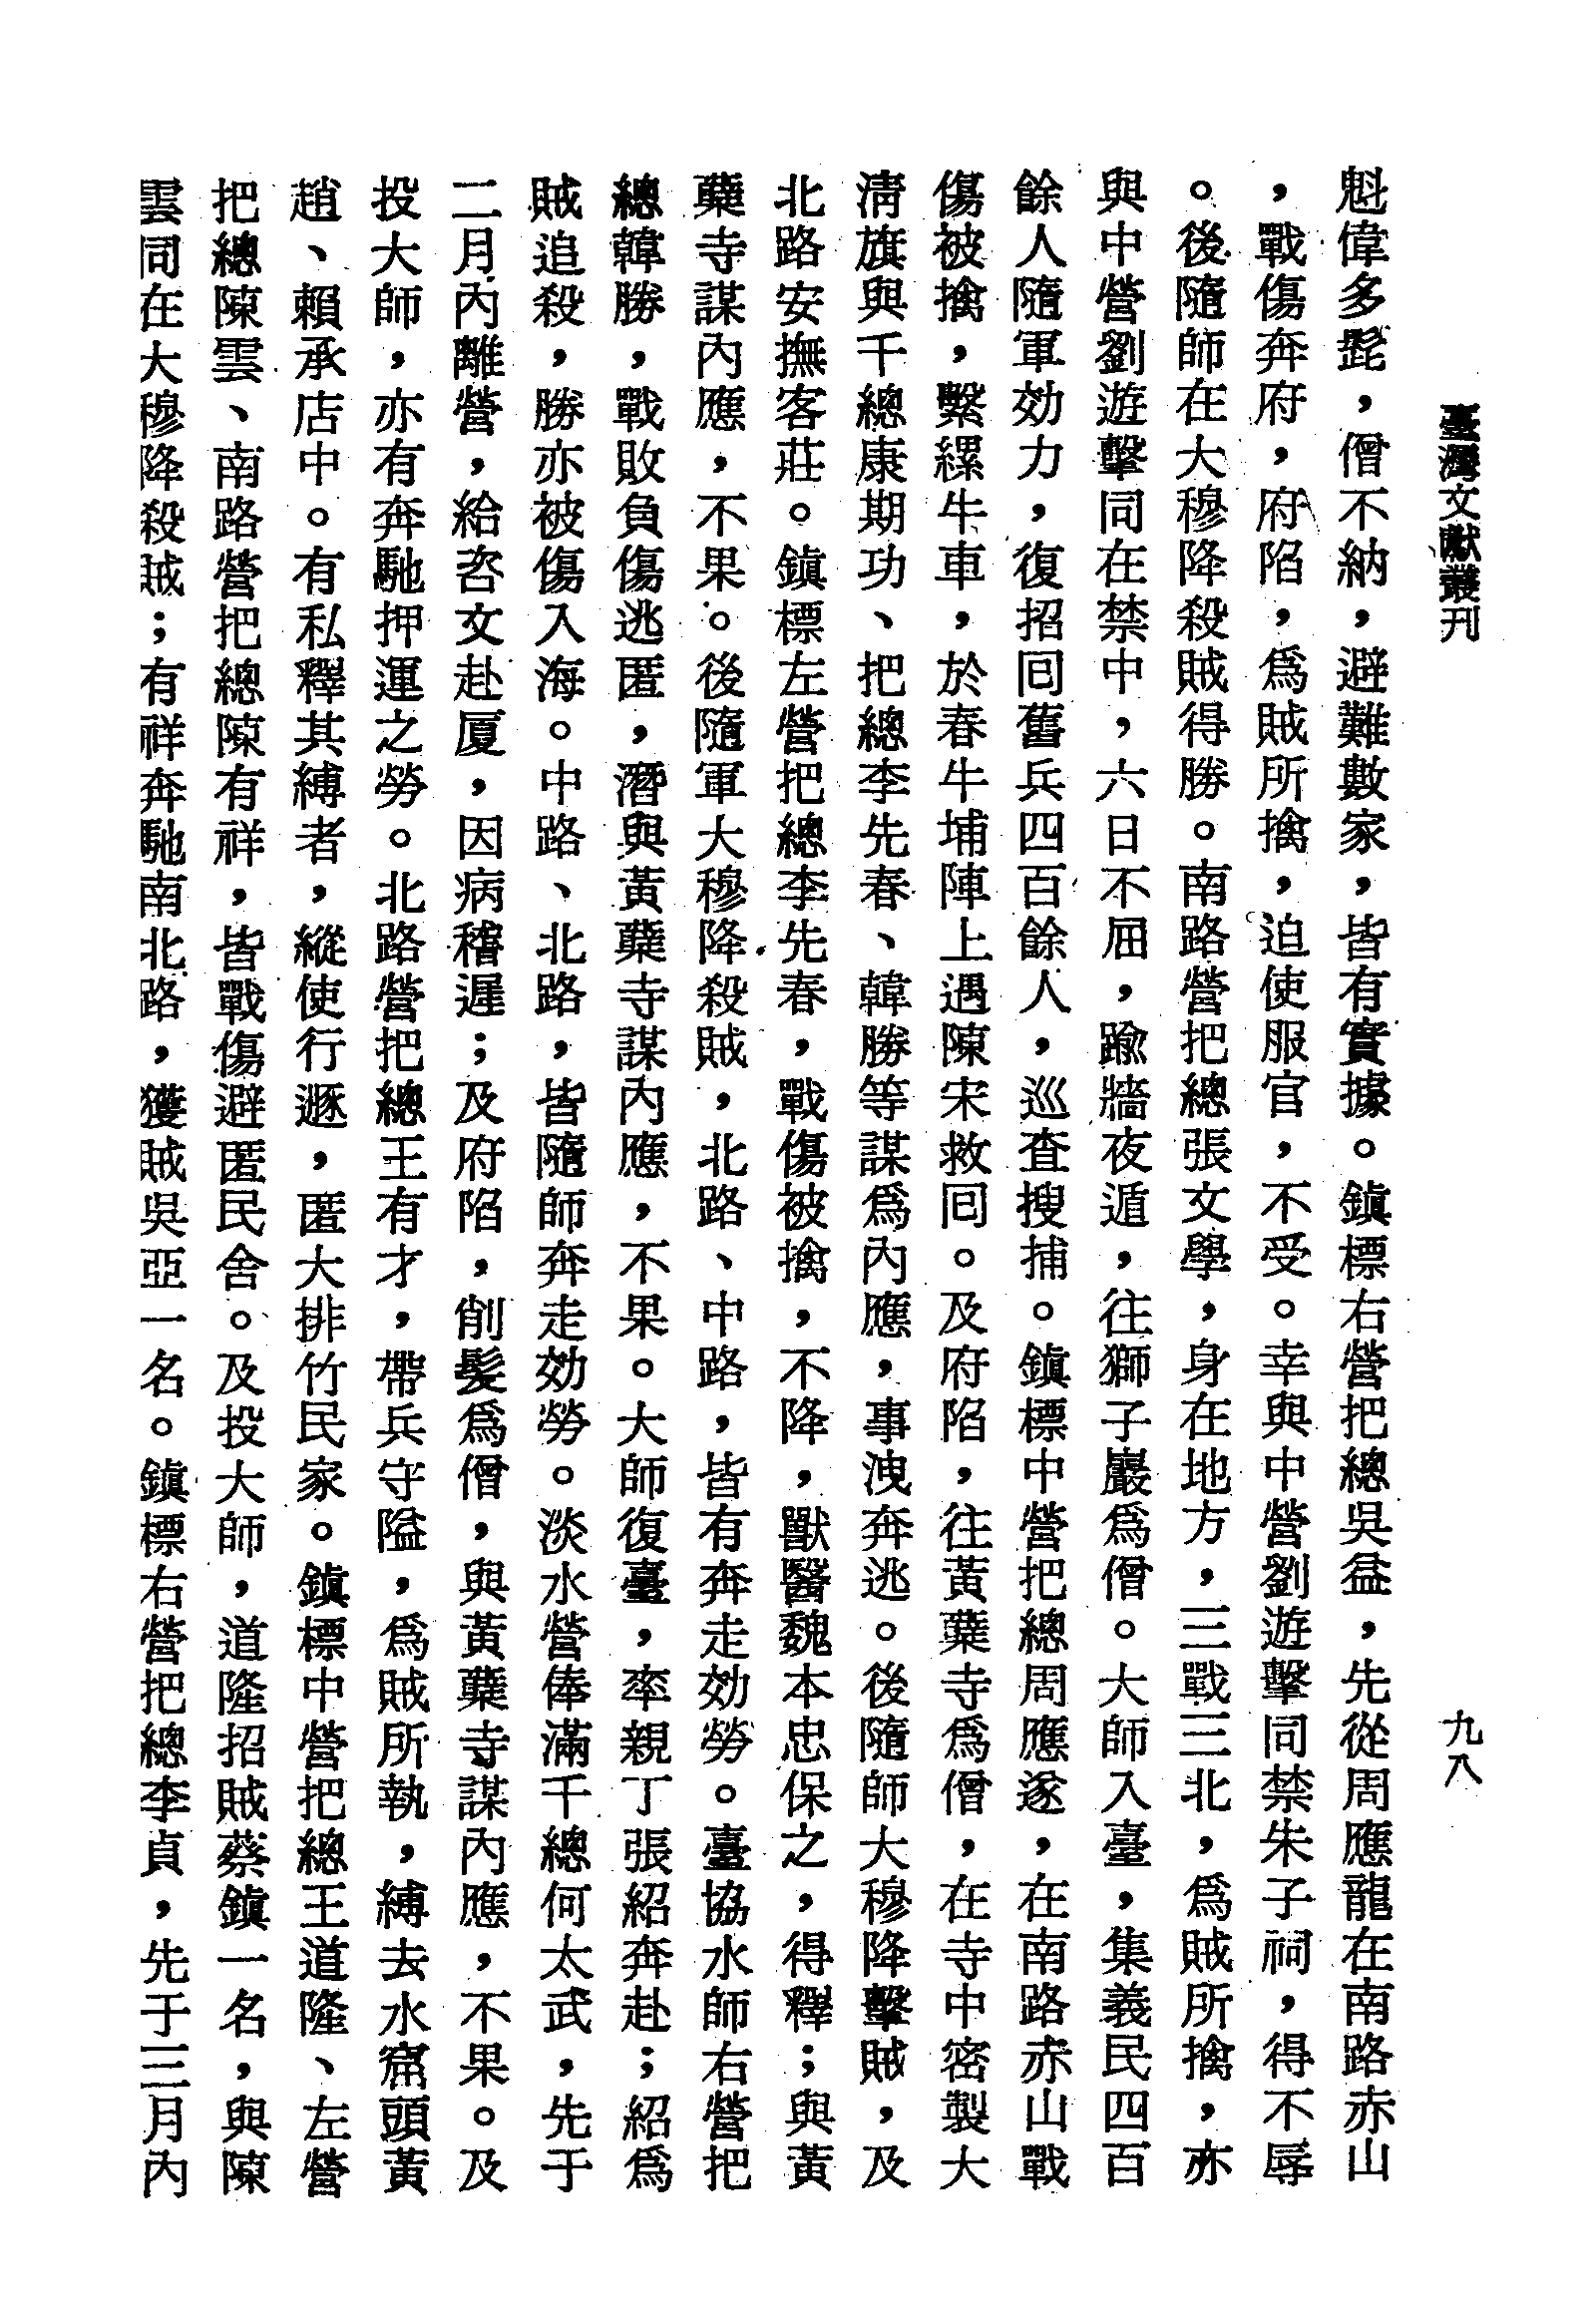 臺灣文獻叢刊
九八
魁偉多髭，僧不納，避難數家，皆有實據。鎮標右營把總吳益，先從周應龍在南路赤山
，戰傷奔府，府陷，爲賊所擒，迫使服官，不受。幸與中營劉遊擊同禁朱子祠，得不辱
。後隨師在大穆降殺賊得勝。南路營把總張文學，身在地方，三戰三北，爲賊所擒，亦
與中營劉遊擊同在禁中，六日不屈，踰牆夜遁，往獅子巖爲僧。大師入臺，集義民四百
餘人隨軍効力，復招回舊兵四百餘人，巡查搜捕。鎮標中營把總周應遂，在南路赤山戰
傷被擒，繫縲牛車，於春牛埔陣上遇陳宋救回。及府陷，往黃蘗寺爲僧，在寺中密製大
淸旗與千總康期功、把總李先春、韓勝等謀爲內應，事洩奔逃。後隨師大穆降擊賊，及
北路安撫客莊。鎮標左營把總李先春，戰傷被擒，不降，獸醫魏本忠保之，得釋；與黃
蘗寺謀內應，不果。後隨軍大穆降殺賊，北路、中路，皆有奔走効勞。臺協水師右營把
總韓勝，戰敗負傷逃匿，潛與黃蘗寺謀內應，不果。大師復臺，率親丁張紹奔赴；紹爲
賊追殺，勝亦被傷入海。中路、北路，皆隨師奔走効勞。淡水營俸滿千總何太武，先于
二月內離營，給咨文赴厦，因病稽遲；及府陷，削髮爲僧，與黃蘗寺謀內應，不果。及
投大師，亦有奔馳押運之勞。北路營把總王有才，帶兵守隘，爲賊所執，縛去水窟頭黃
趙、賴承店中。有私釋其縛者，縱使行遯，匿大排竹民家。鎮標中營把總王道隆、左營
把總陳雲、南路營把總陳有祥，皆戰傷避匿民舍。及投大師，道隆招賊蔡鎮一名，與陳
雲同在大穆降殺賊；有祥奔馳南北路，獲賊吳亞一名。鎮標右營把總李貞，先于三月內